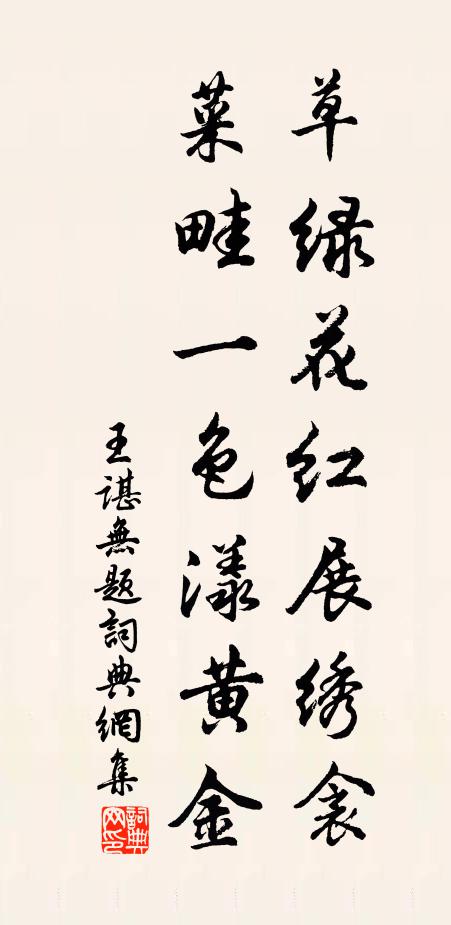 草绿花红展绣衾
菜畦一色漾黄金
王谌無题詞典網集
詞典网印